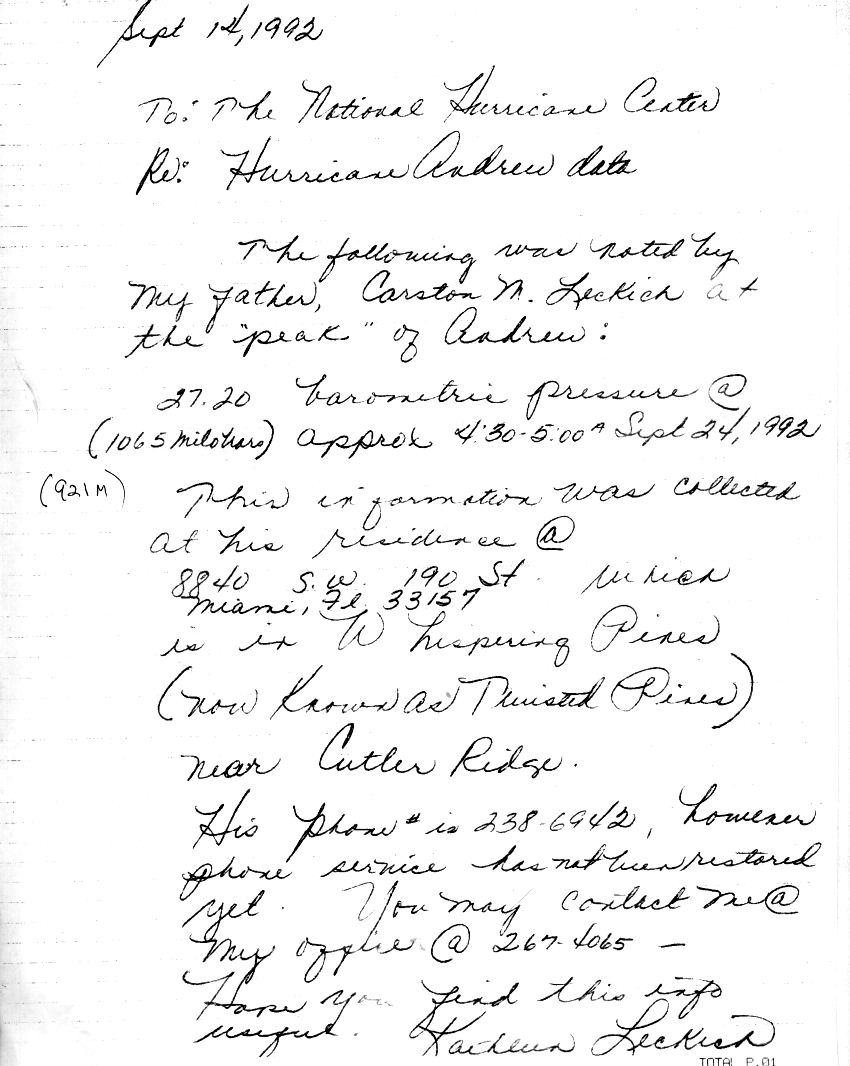 Sept 14, 1992
To: The National Hurricane Center
Re: Hurricane Andrew data
The following was noted by
my father, Carston M. Leckich at
the "peak" of Andrew:
27.20 barometric pressure @
(1065 milobars) approx 4:30-5:00 A Sept 24, 1992
(921 M)
This information was collected
at his residence @
8840 S.W. 190 St. which
Miami, Fl, 33157
is in Whispering Pines
(now known as Twisted Pines)
near Cutler Ridge.
His phone # is 238-6942, however
phone service has not been restored
yet. You may contact me @
my office @ 267-4065 —
Hope you find this info
useful. Kathleen Leckich
TOTAL P.01